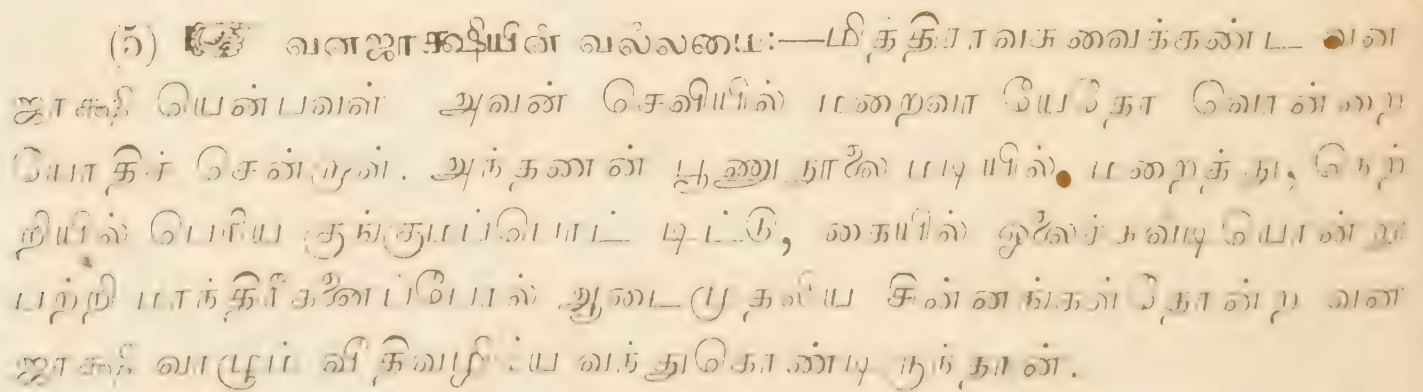 (5) வனஜாக்ஷியின் வல்லமை:—மித்திராவசுவைக்கண்ட வன
ஜாக்ஷி யென்பவள் அவன் செவியில் மறைவா யேதோ வொன்றை
யோதிச் சென்றாள். அந்தணன் பூணுநூலை மடியில் மறைத்து, நெற்
றியில் பெரிய குங்குமப்பொட் டிட்டு, கையில் ஓலைச்சுவடியொன்று
பற்றி மாந்திரீகனைப்போல் ஆடைமுதலிய சின்னங்கள்தோன்ற வன
ஜாக்ஷி வாழும் வீதிவழியே வந்துகொண்டிருந்தான்.